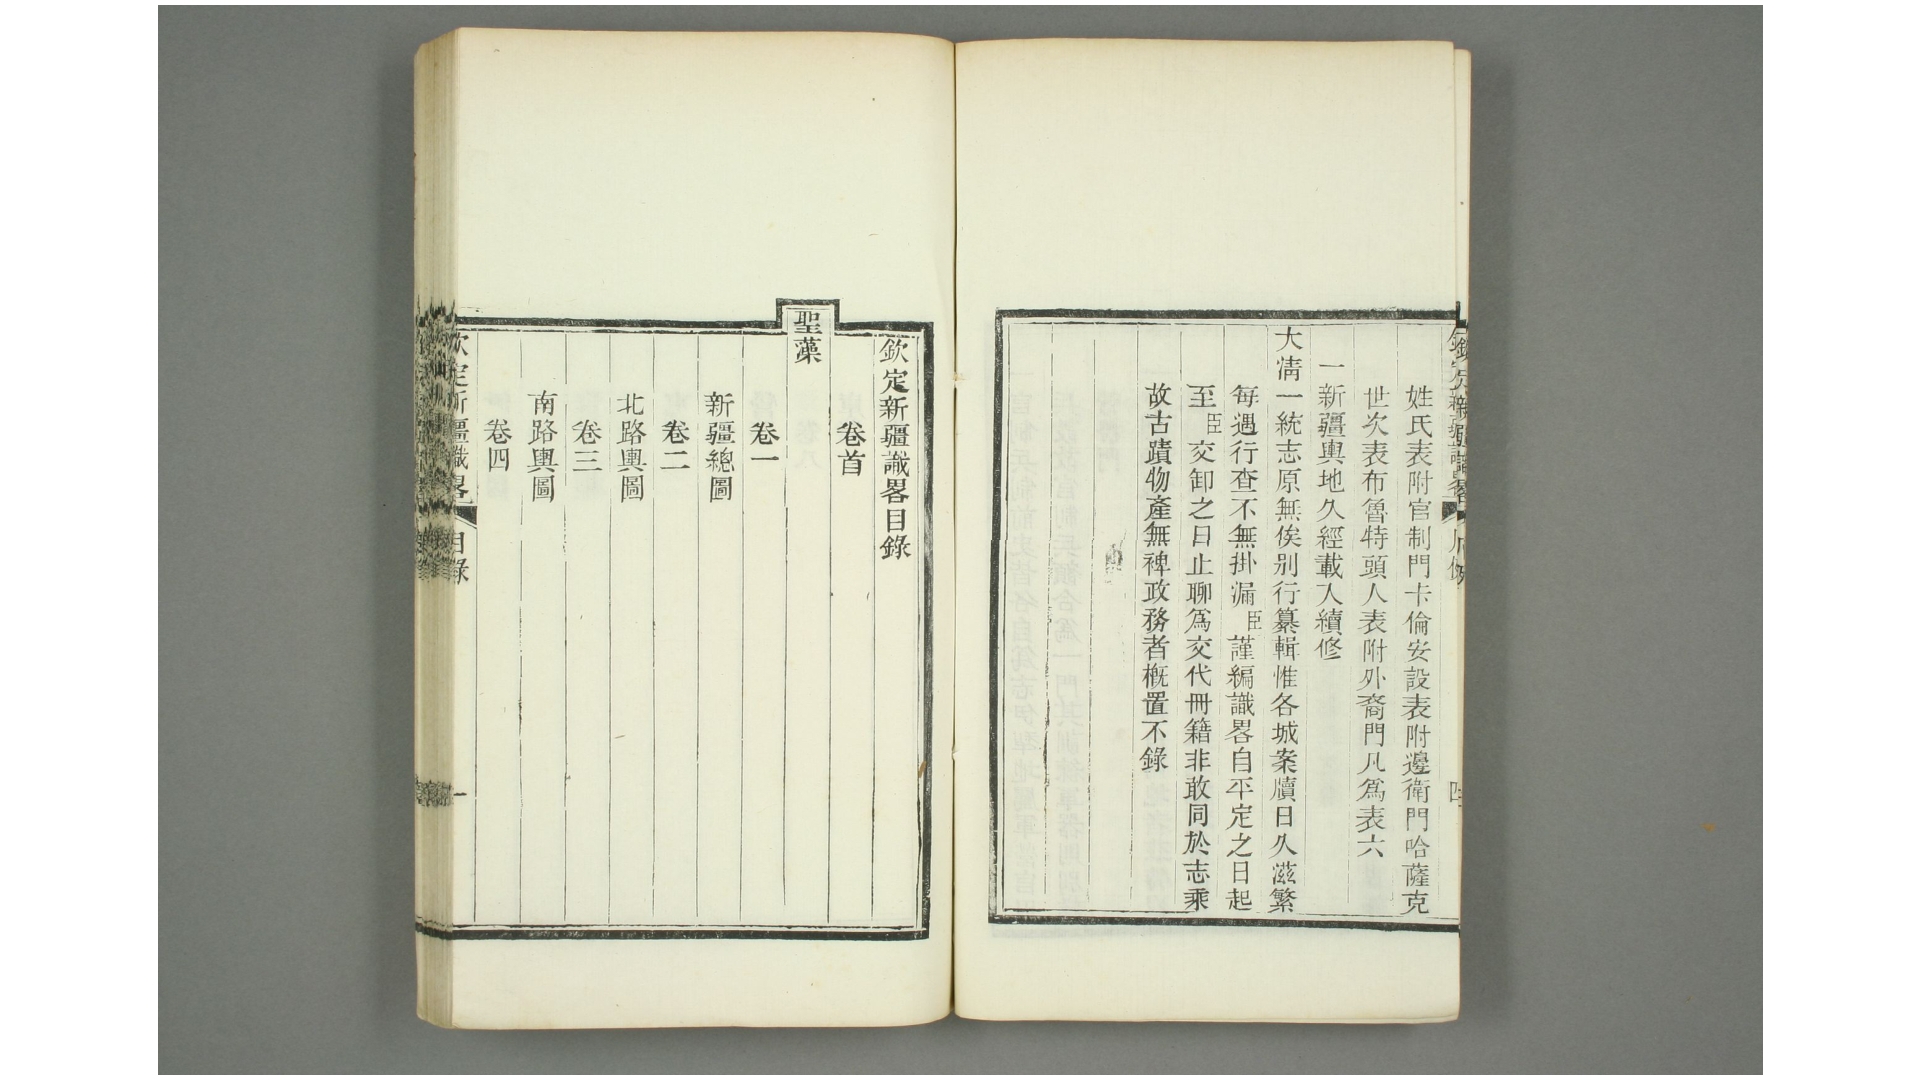 姓氏表附官制門卡倫安設表附邊衛門哈薩克
世次表布魯特頭人表附外裔門凡爲表六
一新疆輿地久經載入續修
大淸一統志原無俟別行纂輯惟各城案牘日久滋繁
每遇行查不無掛漏臣謹編識畧自平定之日起
至臣交卸之日止聊爲交代冊籍非敢同於志乘
故古蹟物產無裨政務者槪置不錄
欽定新疆識畧目錄
卷首
聖藻
卷一
新疆總圖
卷二
北路輿圖
卷三
南路輿圖
卷四
欽定新疆識畧
目錄
一